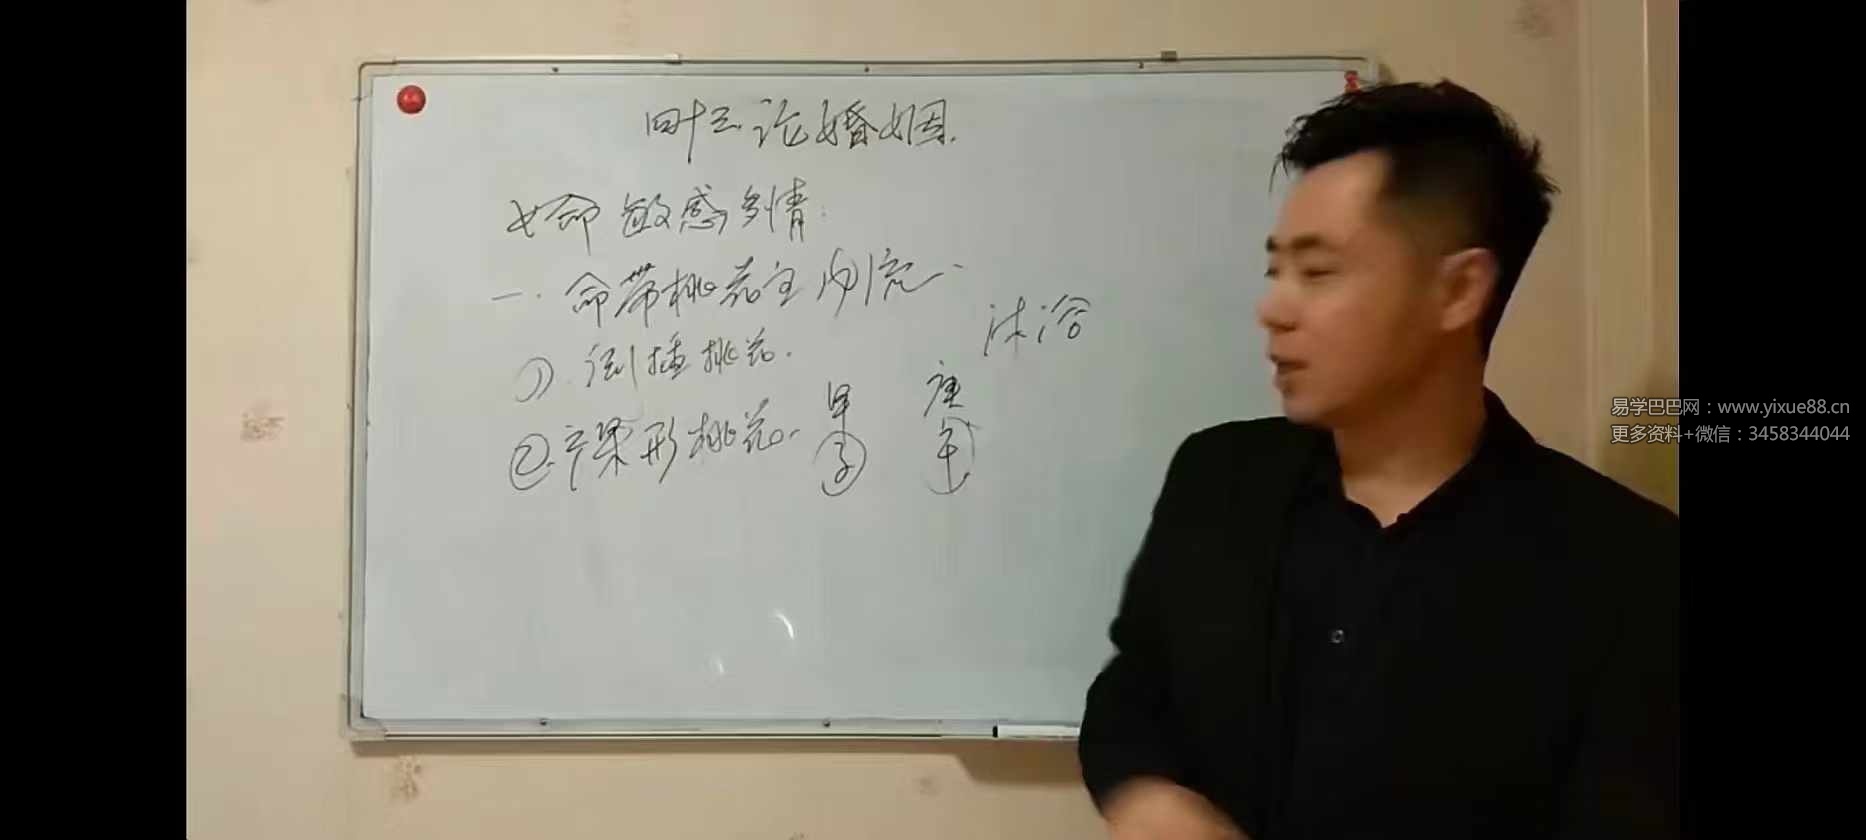 四十三 论婚姻.
女命 敏感多情:
一. 命带桃花主内情.
沐浴
① 倒插桃花.
② 桃花.
子
午
易学巴巴网:www.yixue88.cn
更多资料+微信:3458344044